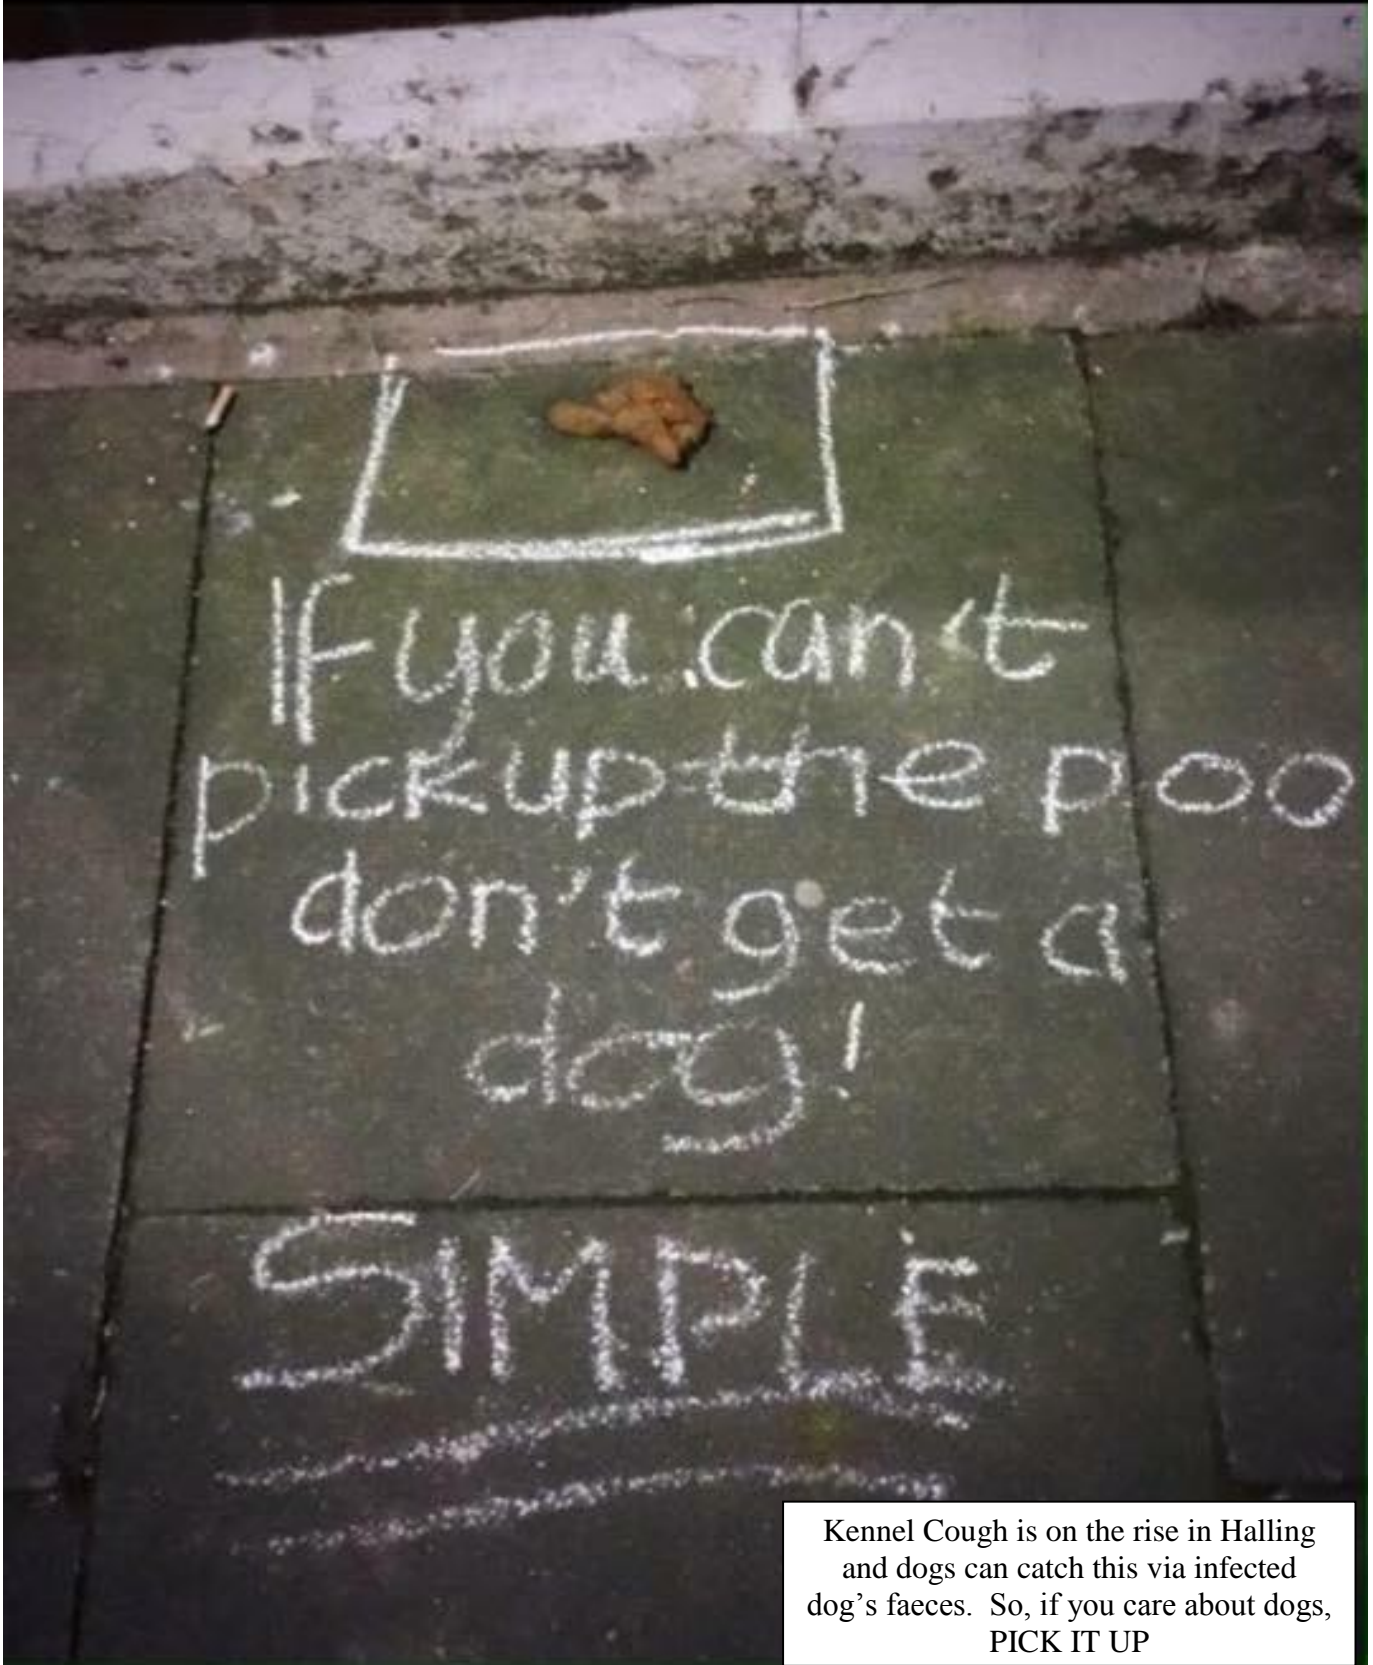 If you can't
pick up the poo
don't get a
dog!
SIMPLE
Kennel Cough is on the rise in Halling
and dogs can catch this via infected
dog's faeces.  So, if you care about dogs,
PICK IT UP